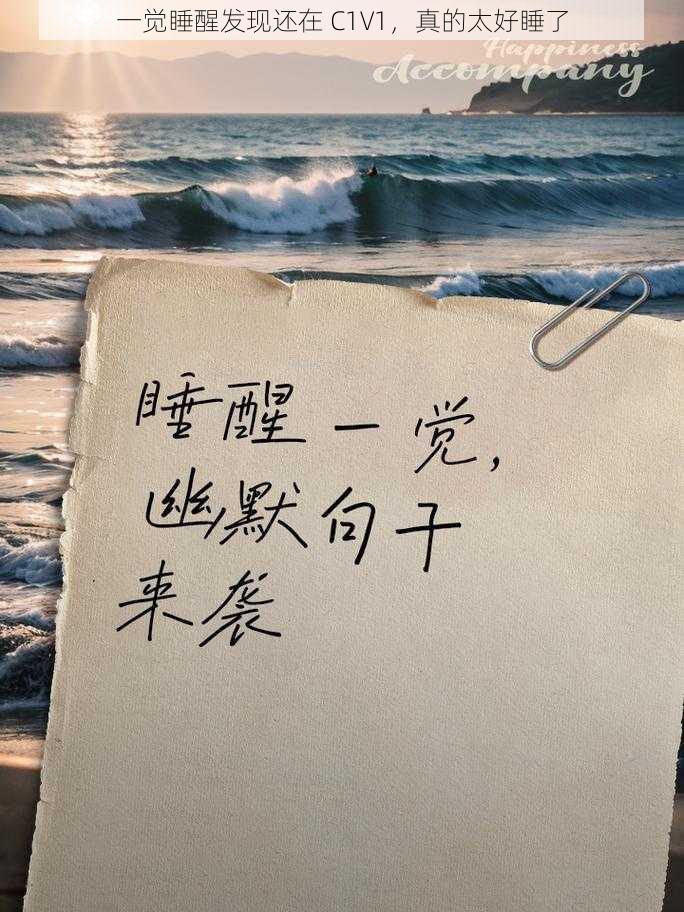 一觉睡醒发现还在 C1V1，真的太好睡了
Happiness
Accompany
睡醒一觉,
幽默句子
来袭